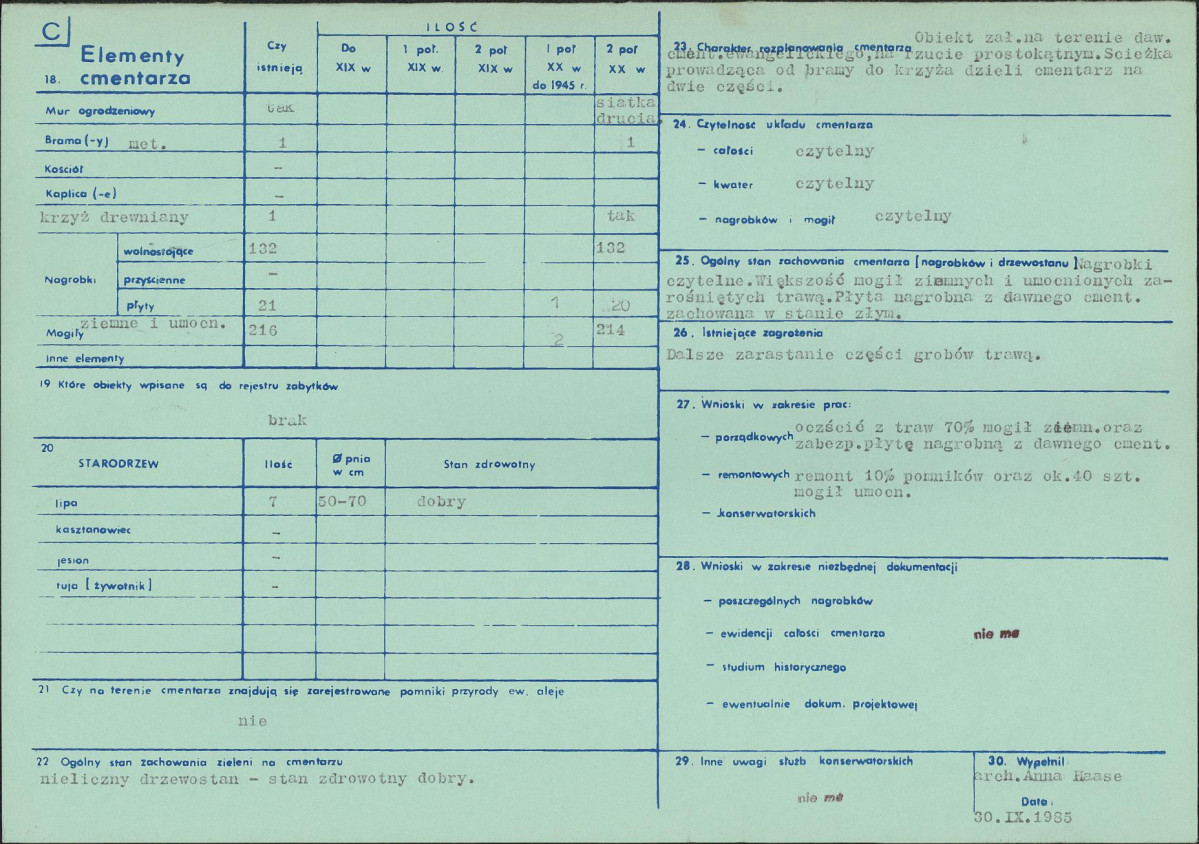 C
Elementy
18. cmentarza
Czy
istnieją
ILOŚĆ
Do
XIX w
1 poł.
XIX w.
2 poł
XIX w
1 poł
XX w
do 1945 r.
2 poł
XX w
Mur ogrodzeniowy tak siatka
drucia.
Brama (-y) met. 1 1
Kościół –
Kaplica (-e) –
krzyż drewniany 1 tak
Nagrobki
wolnostojące 132 132
przyścienne –
płyty 21 1 20
Mogiły ziemne i umocn. 216 2 214
Inne elementy
19 Które obiekty wpisane są do rejestru zabytków
brak
20
STARODRZEW Ilość Ø pnia
w cm
Stan zdrowotny
lipa 7 50-70 dobry
kasztanowiec –
jesion –
tuja [żywotnik] –
21 Czy na terenie cmentarza znajdują się zarejestrowane pomniki przyrody ew. aleje
nie
22 Ogólny stan zachowania zieleni na cmentarzu
nieliczny drzewostan – stan zdrowotny dobry.
23. Charakter rozplanowania cmentarza Obiekt zał.na terenie daw.
cment.ewangelickiego,na rzucie prostokątnym.Scieżka
prowadząca od bramy do krzyża dzieli cmentarz na
dwie części.
24. Czytelność układu cmentarza
– całości czytelny
– kwater czytelny
– nagrobków i mogił czytelny
25. Ogólny stan zachowania cmentarza [nagrobków i drzewostanu] Nagrobki
czytelne.Większość mogił ziemnych i umocnionych za-
rośniętych trawą.Płyta nagrobna z dawnego cment.
zachowana w stanie złym.
26. Istniejące zagrożenia
Dalsze zarastanie części grobów trawą.
27. Wnioski w zakresie prac:
– porządkowych oczścić z traw 70% mogił ziemn.oraz
zabezp.płytę nagrobną z dawnego cment.
– remontowych remont 10% pomników oraz ok.40 szt.
mogił umocn.
– konserwatorskich
28. Wnioski w zakresie niezbędnej dokumentacji
– poszczególnych nagrobków
– ewidencji całości cmentarza nie ma
– studium historycznego
– ewentualnie dokum. projektowej
29. Inne uwagi służb konserwatorskich
nie ma
30. Wypełnił
arch.Anna Haase
Data:
30.IX.1985